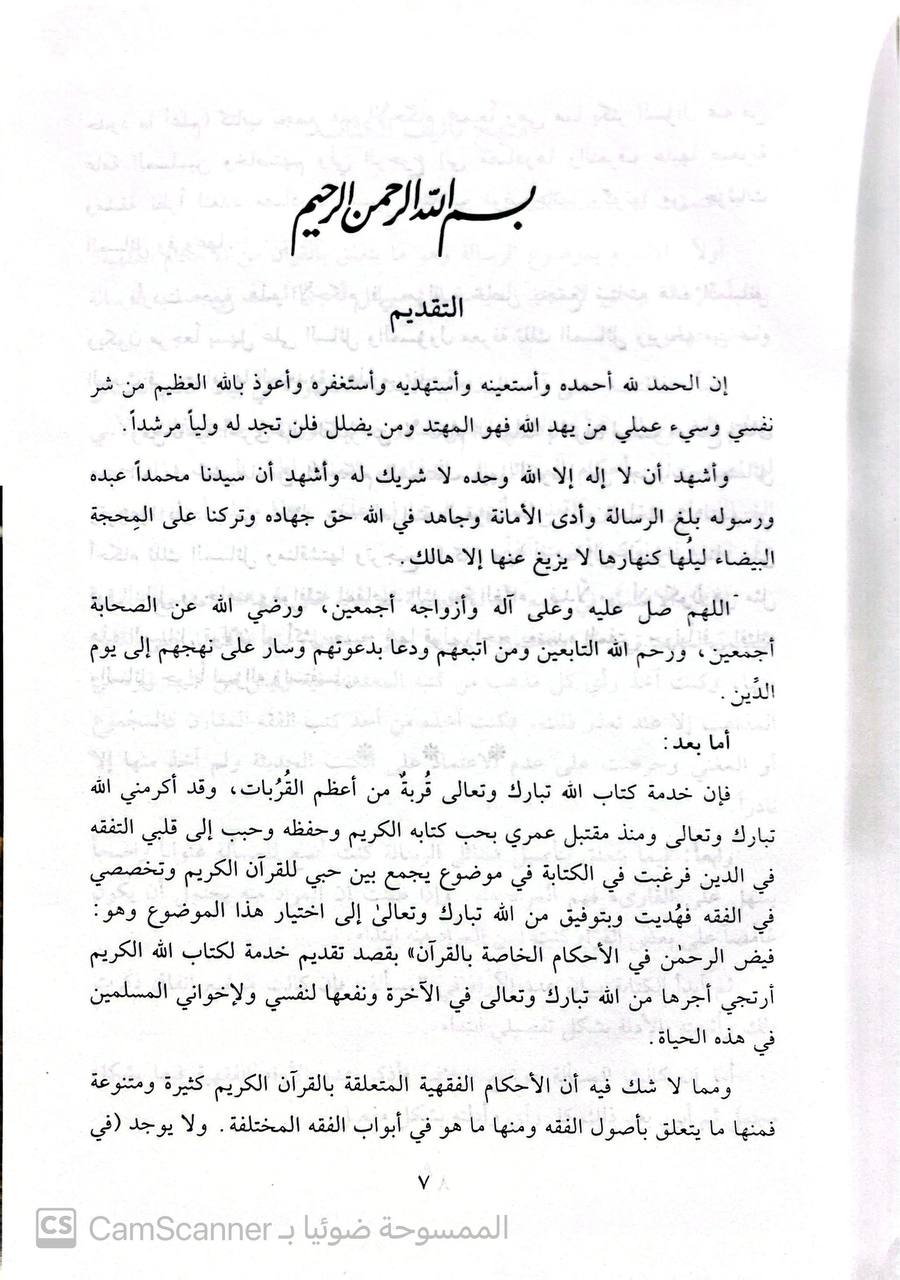 بسم الله الرحمن الرحيم
التقديم
إن الحمد لله أحمده وأستعينه وأستهديه وأستغفره وأعوذ بالله العظيم من شر
نفسي وسيء عملي من يهد الله فهو المهتد ومن يضلل فلن تجد له ولياً مرشداً.
وأشهد أن لا إله إلا الله وحده لا شريك له وأشهد أن سيدنا محمداً عبده
ورسوله بلغ الرسالة وأدى الأمانة وجاهد في الله حق جهاده وتركنا على المِحجة
البيضاء ليلُها كنهارها لا يزيغ عنها إلا هالك.
اللهم صل عليه وعلى آله وأزواجه أجمعين، ورضي الله عن الصحابة
أجمعين، ورحم الله التابعين ومن اتبعهم ودعا بدعوتهم وسار على نهجهم إلى يوم
الدِّين.
أما بعد:
فإن خدمة كتاب الله تبارك وتعالى قُربةٌ من أعظم القُرُبات، وقد أكرمني الله
تبارك وتعالى ومنذ مقتبل عمري بحب كتابه الكريم وحفظه وحبب إلى قلبي التفقه
في الدين فرغبت في الكتابة في موضوع يجمع بين حبي للقرآن الكريم وتخصصي
في الفقه فهُديت وبتوفيق من الله تبارك وتعالىٰ إلى اختيار هذا الموضوع وهو:
فيض الرحمٰن في الأحكام الخاصة بالقرآن» بقصد تقديم خدمة لكتاب الله الكريم
أرتجي أجرها من الله تبارك وتعالى في الآخرة ونفعها لنفسي ولإخواني المسلمين
في هذه الحياة.
ومما لا شك فيه أن الأحكام الفقهية المتعلقة بالقرآن الكريم كثيرة ومتنوعة
فمنها ما يتعلق بأصول الفقه ومنها ما هو في أبواب الفقه المختلفة. ولا يوجد (في
٧
CS الممسوحة ضوئيا بـ CamScanner